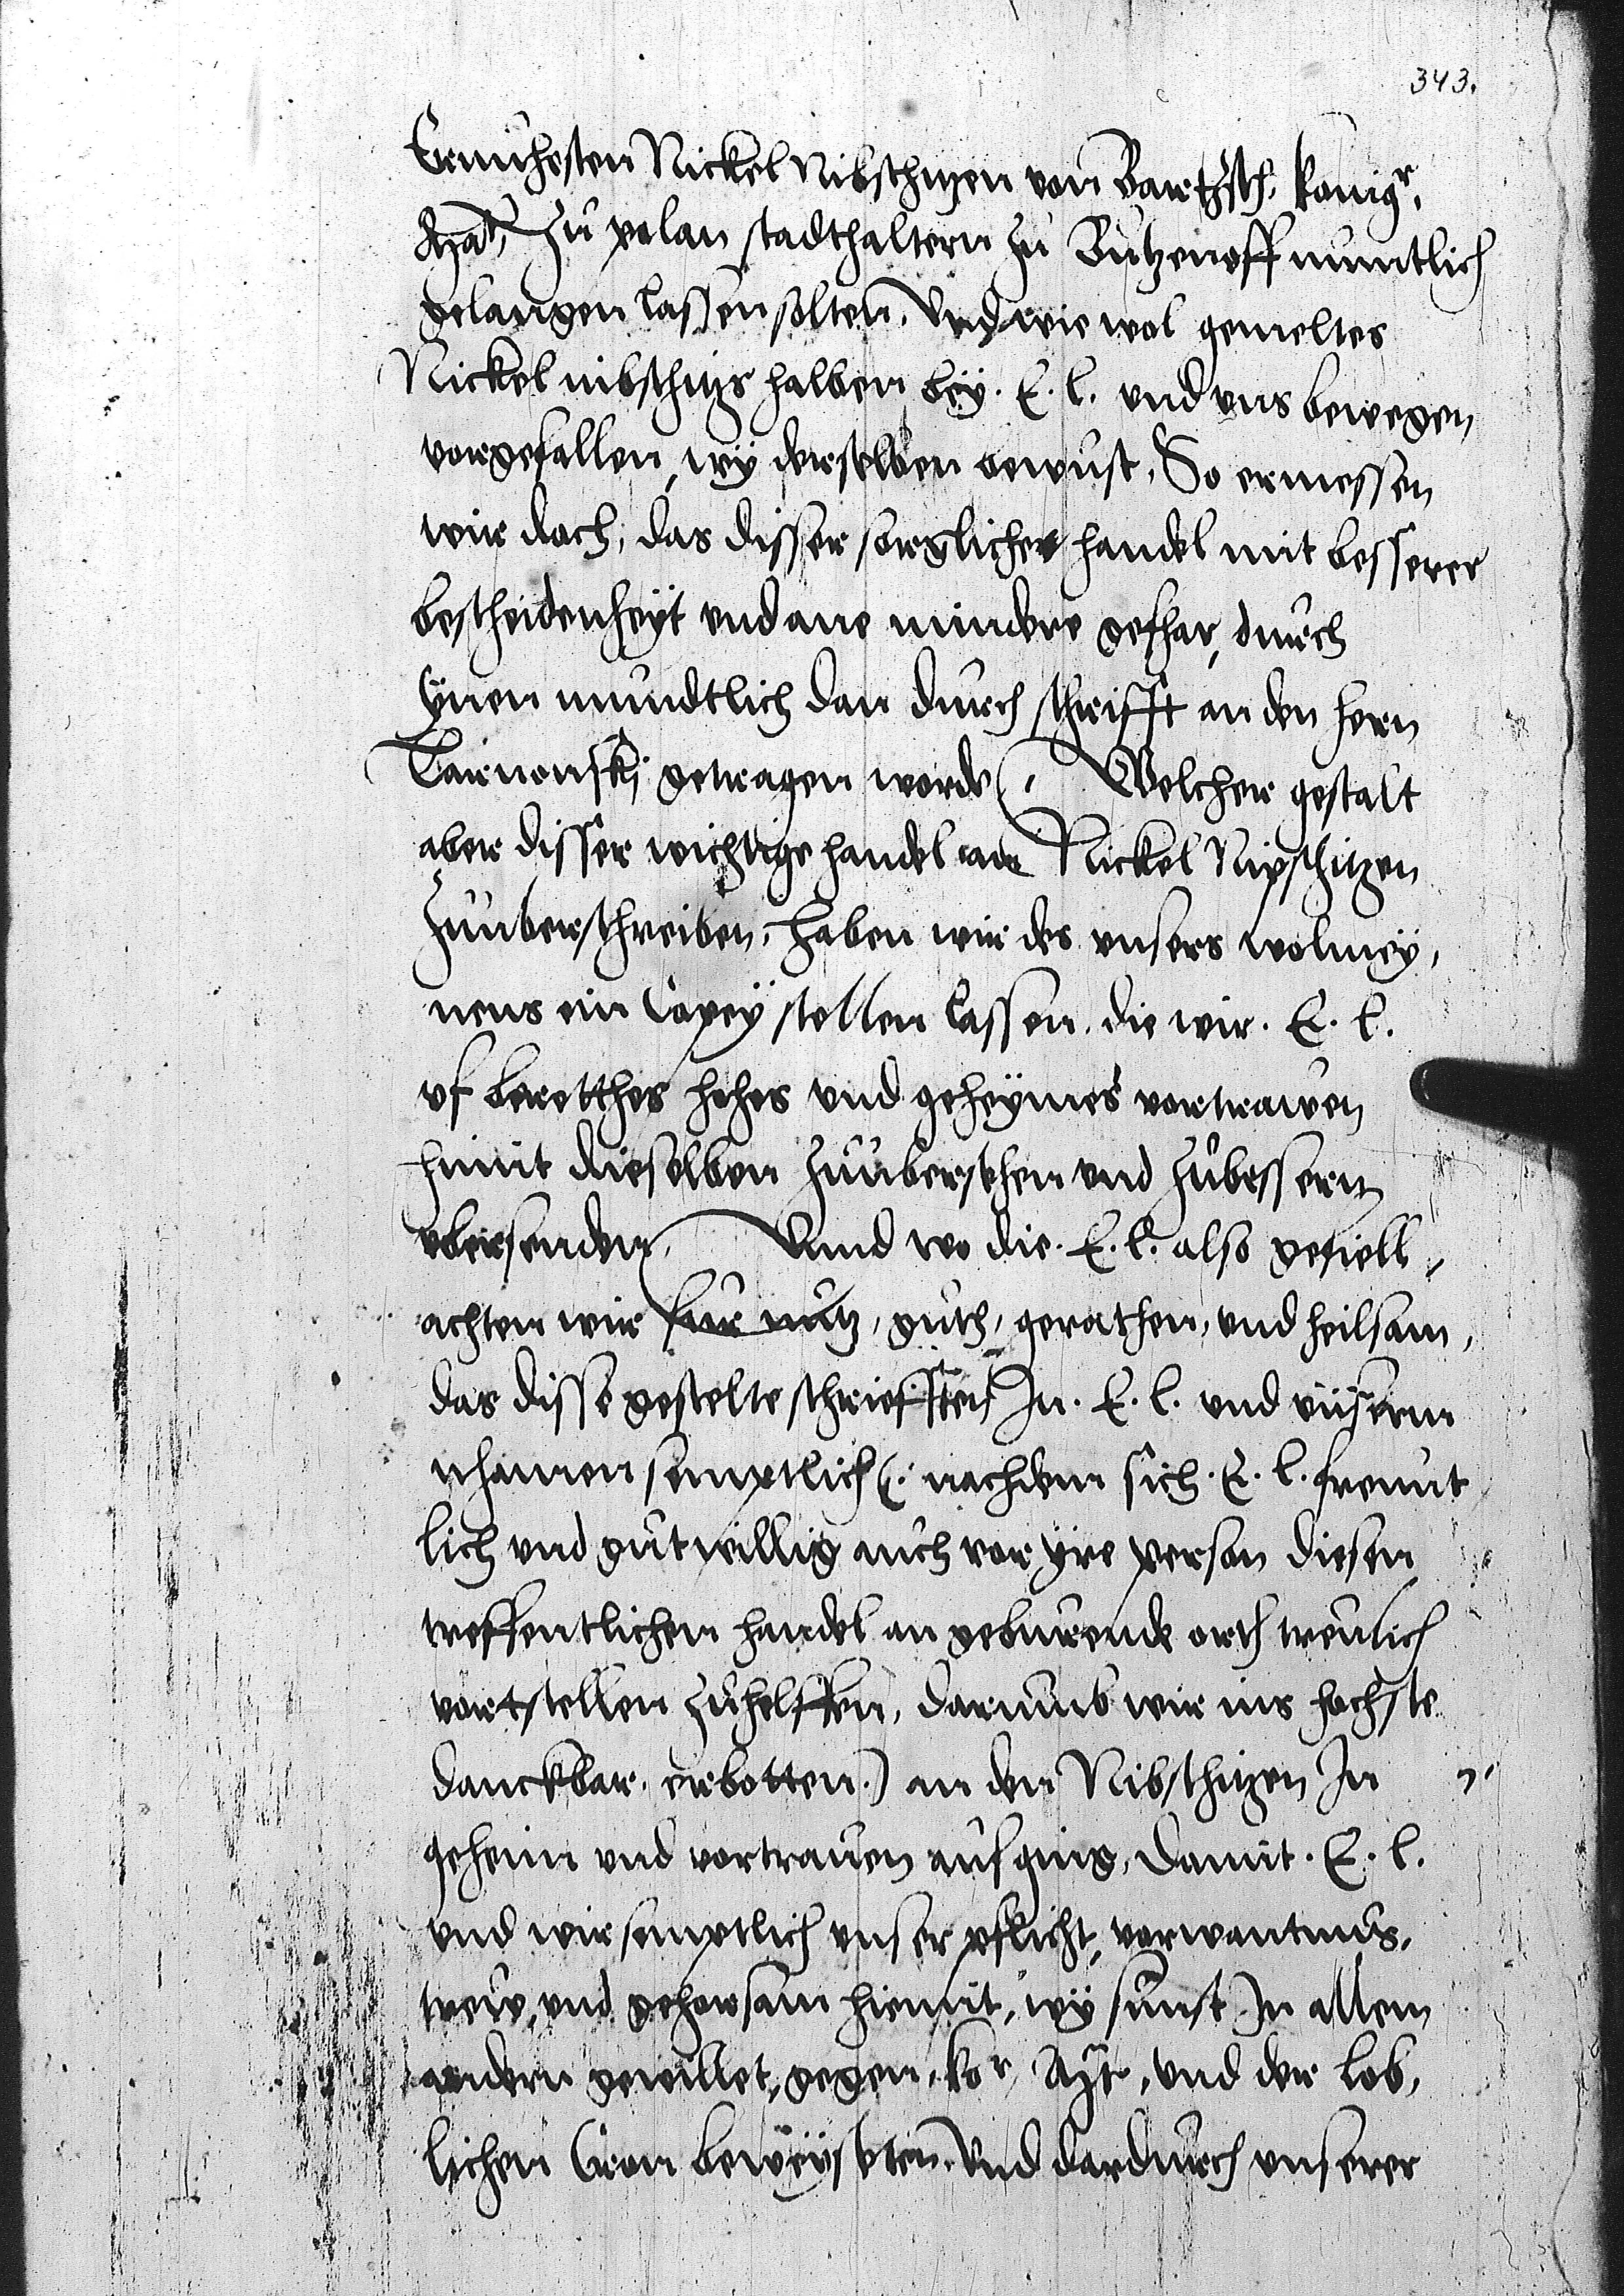 343.
Ernuhesten Nickel Nibschitzen von Bartzsch, konigr.
Mat. zu polan stadthaltern zu Butzenoff muntlich
gelangen lassen solten. Und wie wol gemeltes
Nickel nibschitzs halben bey. E. l. und uns bewegen
vorgefallen, wy derselben bewust. So ermessen
wir doch, das disser sorglicher handel mit besserer
bescheidenheyt und ane mindere gefhar, durch
ynen mundtlich dan durch schrifft an den hern
Tarnonski getragen worde. Welcher gestalt
aber disser wichtige handel an Nickel Nipschitzen
zuuberschreiben, haben wir des unsers wolmey,
nens ein Copey stellen lassen. die wir. E. l.
uf berettes hohes und geheymes vortrawen
himit dieselben zuubersehen und zubessern
ubersenden. Unnd wo die. E. l. also gefiell,
achten wir fur nutz, guth, gerathen, und heilsam,
das disse gestelte schriefften In. E. l. und unserm
nhamen semptlich (: nachdem sich. E. l. freunt
lich und gutwillig auch vor yre person diesen
treffentlichen handel an geburende orth treulich
vortstellen zuhelffen, darumb wir uns hochste
danckbar erbotten.) an den Nibschitzen In
geheim und vortrauen aufging, damit. E. l.
und wir semptlich unser pflicht, vorwantnus,
trew, und gehorsam hiemit, wy sunst In allem
andern gewillet, gegen. kor. Mt, und der lob,
lichen Cron beweysten. Und dardurch unserer